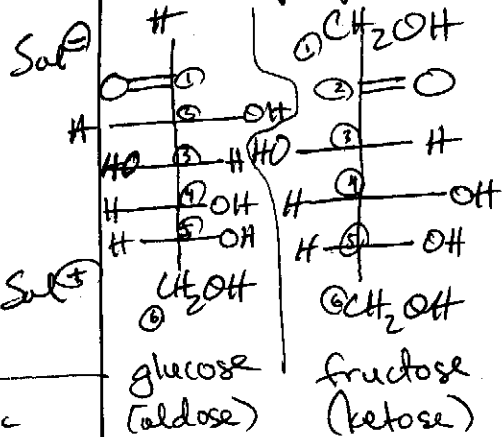 Sol⊖
H
O ①
H ② OH
HO ③ H
H ④ OH
H ⑤ OH
Sol⊕
⑥ CH₂OH
glucose
(aldose)
① CH₂OH
② O
HO ③ H
H ④ OH
H ⑤ OH
⑥ CH₂OH
fructose
(ketose)
c